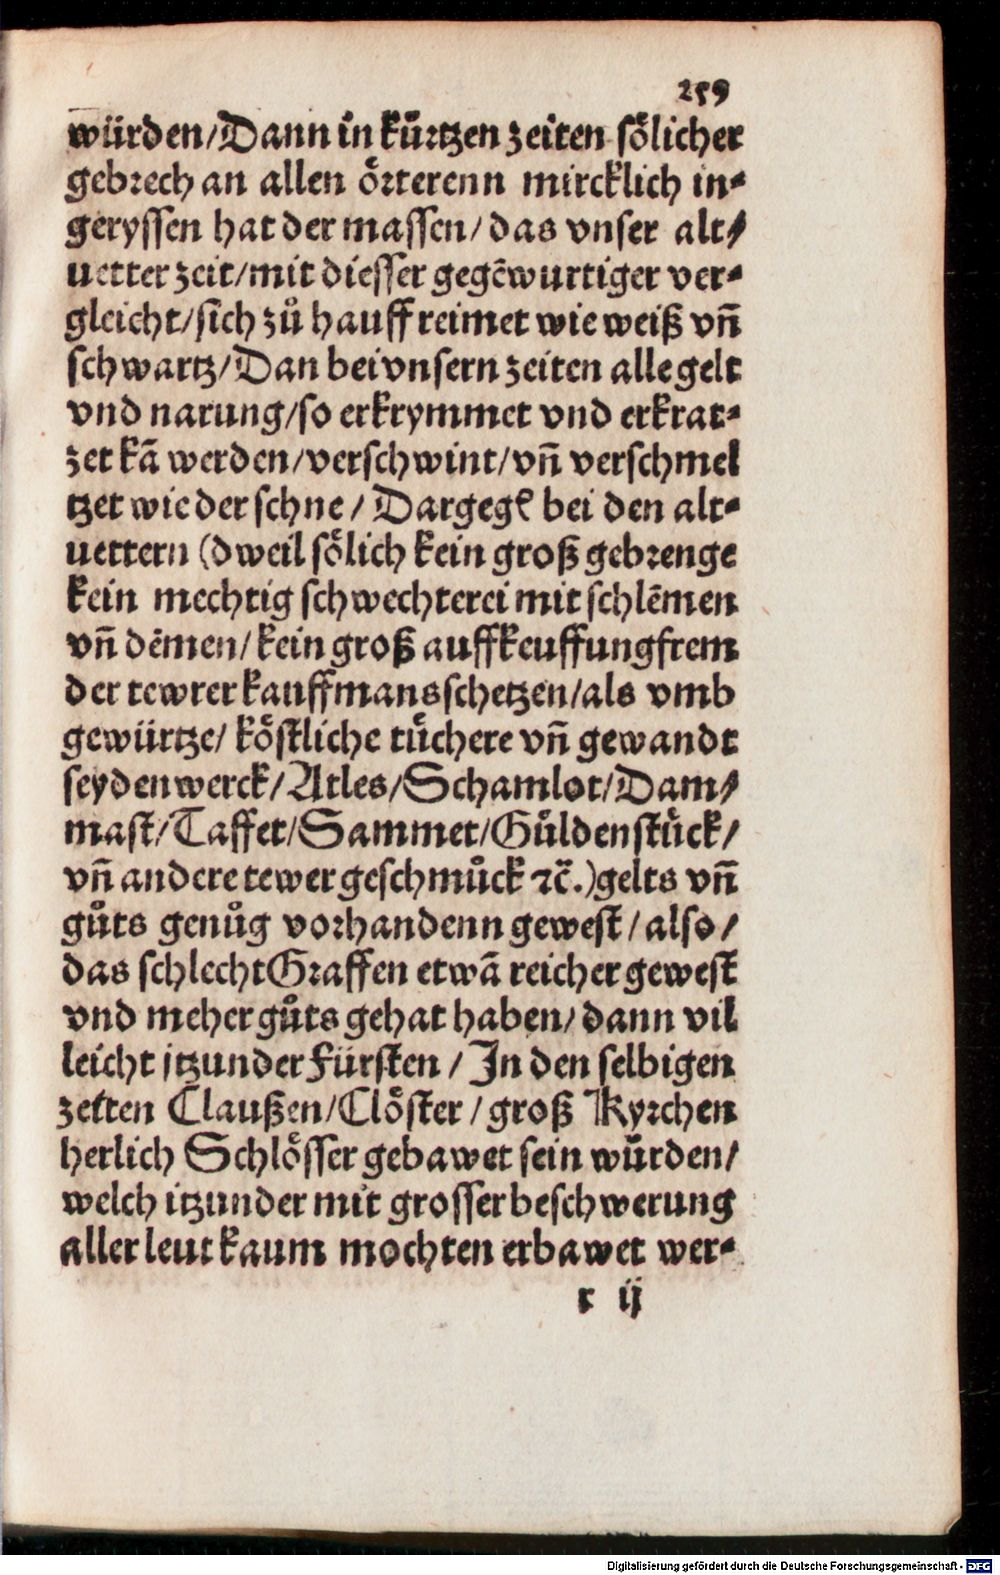 259
würden/Dann in kürtzen zeiten sölicher
gebrech an allen örterenn mircklich in⸗
geryssen hat der massen/ das vnser alt/
uetter zeit/mit diesser gegẽwurtiger ver⸗
gleicht/sich zů hauff reimet wie weiß vñ
schwartz/Dan bei vnsern zeiten alle gelt
vnd narung/so erkrymmet vnd erkrat⸗
zet kã werden/verschwint/vñ verschmel
tzet wie der schne / Dargegẽ bei den alt⸗
uettern (dweil sölich kein groß gebrenge
kein mechtig schwechterei mit schlẽmen
vñ dẽmen/kein groß auffkeuffung frem
der tewrer kauffmansschetzen/als vmb
gewürtze/ köstliche tüchere vñ gewandt
seydenwerck/Atles/Schamlot/Dam/
mast/Taffet/Sammet/Güldenstück/
vñ andere tewer geschmůck ⁊c̃.)gelts vñ
gůts genůg vorhandenn gewest/also/
das schlecht Graffen etwã reicher gewest
vnd meher gůts gehat haben/dann vil
leicht jtzunder Fürsten / In den selbigen
zeiten Claußen/Clöster / groß Kyrchen
herlich Schlösser gebawet sein würden/
welch itzunder mit grosser beschwerung
aller leut kaum mochten erbawet wer⸗
r ij
Digitalisierung gefördert durch die Deutsche Forschungsgemeinschaft - DFG